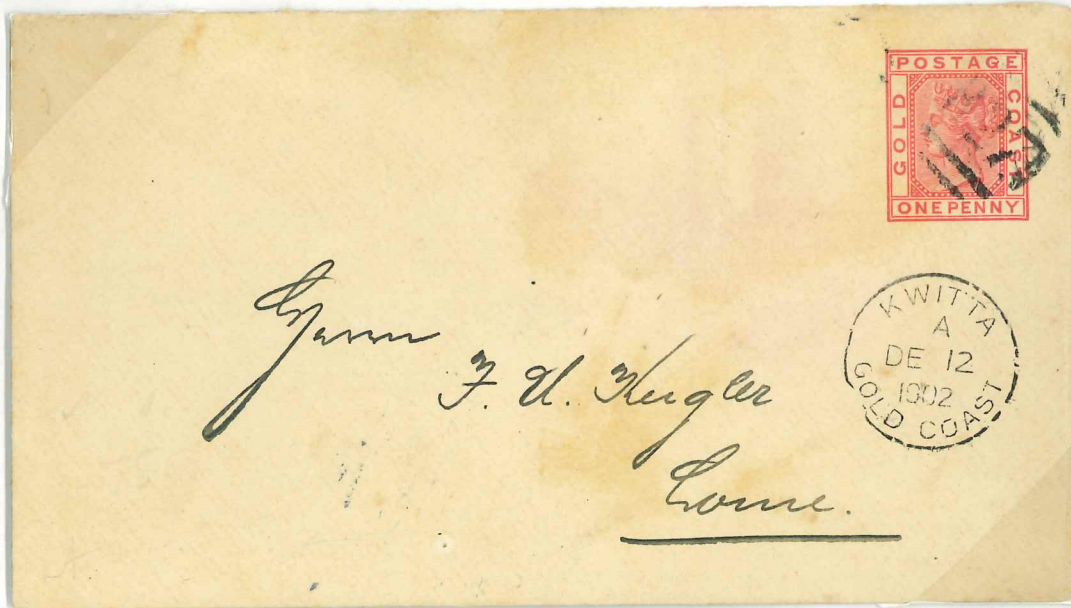 POSTAGE
GOLD
COAST
ONE PENNY
KWITTA
A
DE 12
1902
GOLD COAST
Herrn
F. A. Kugler
Lome.